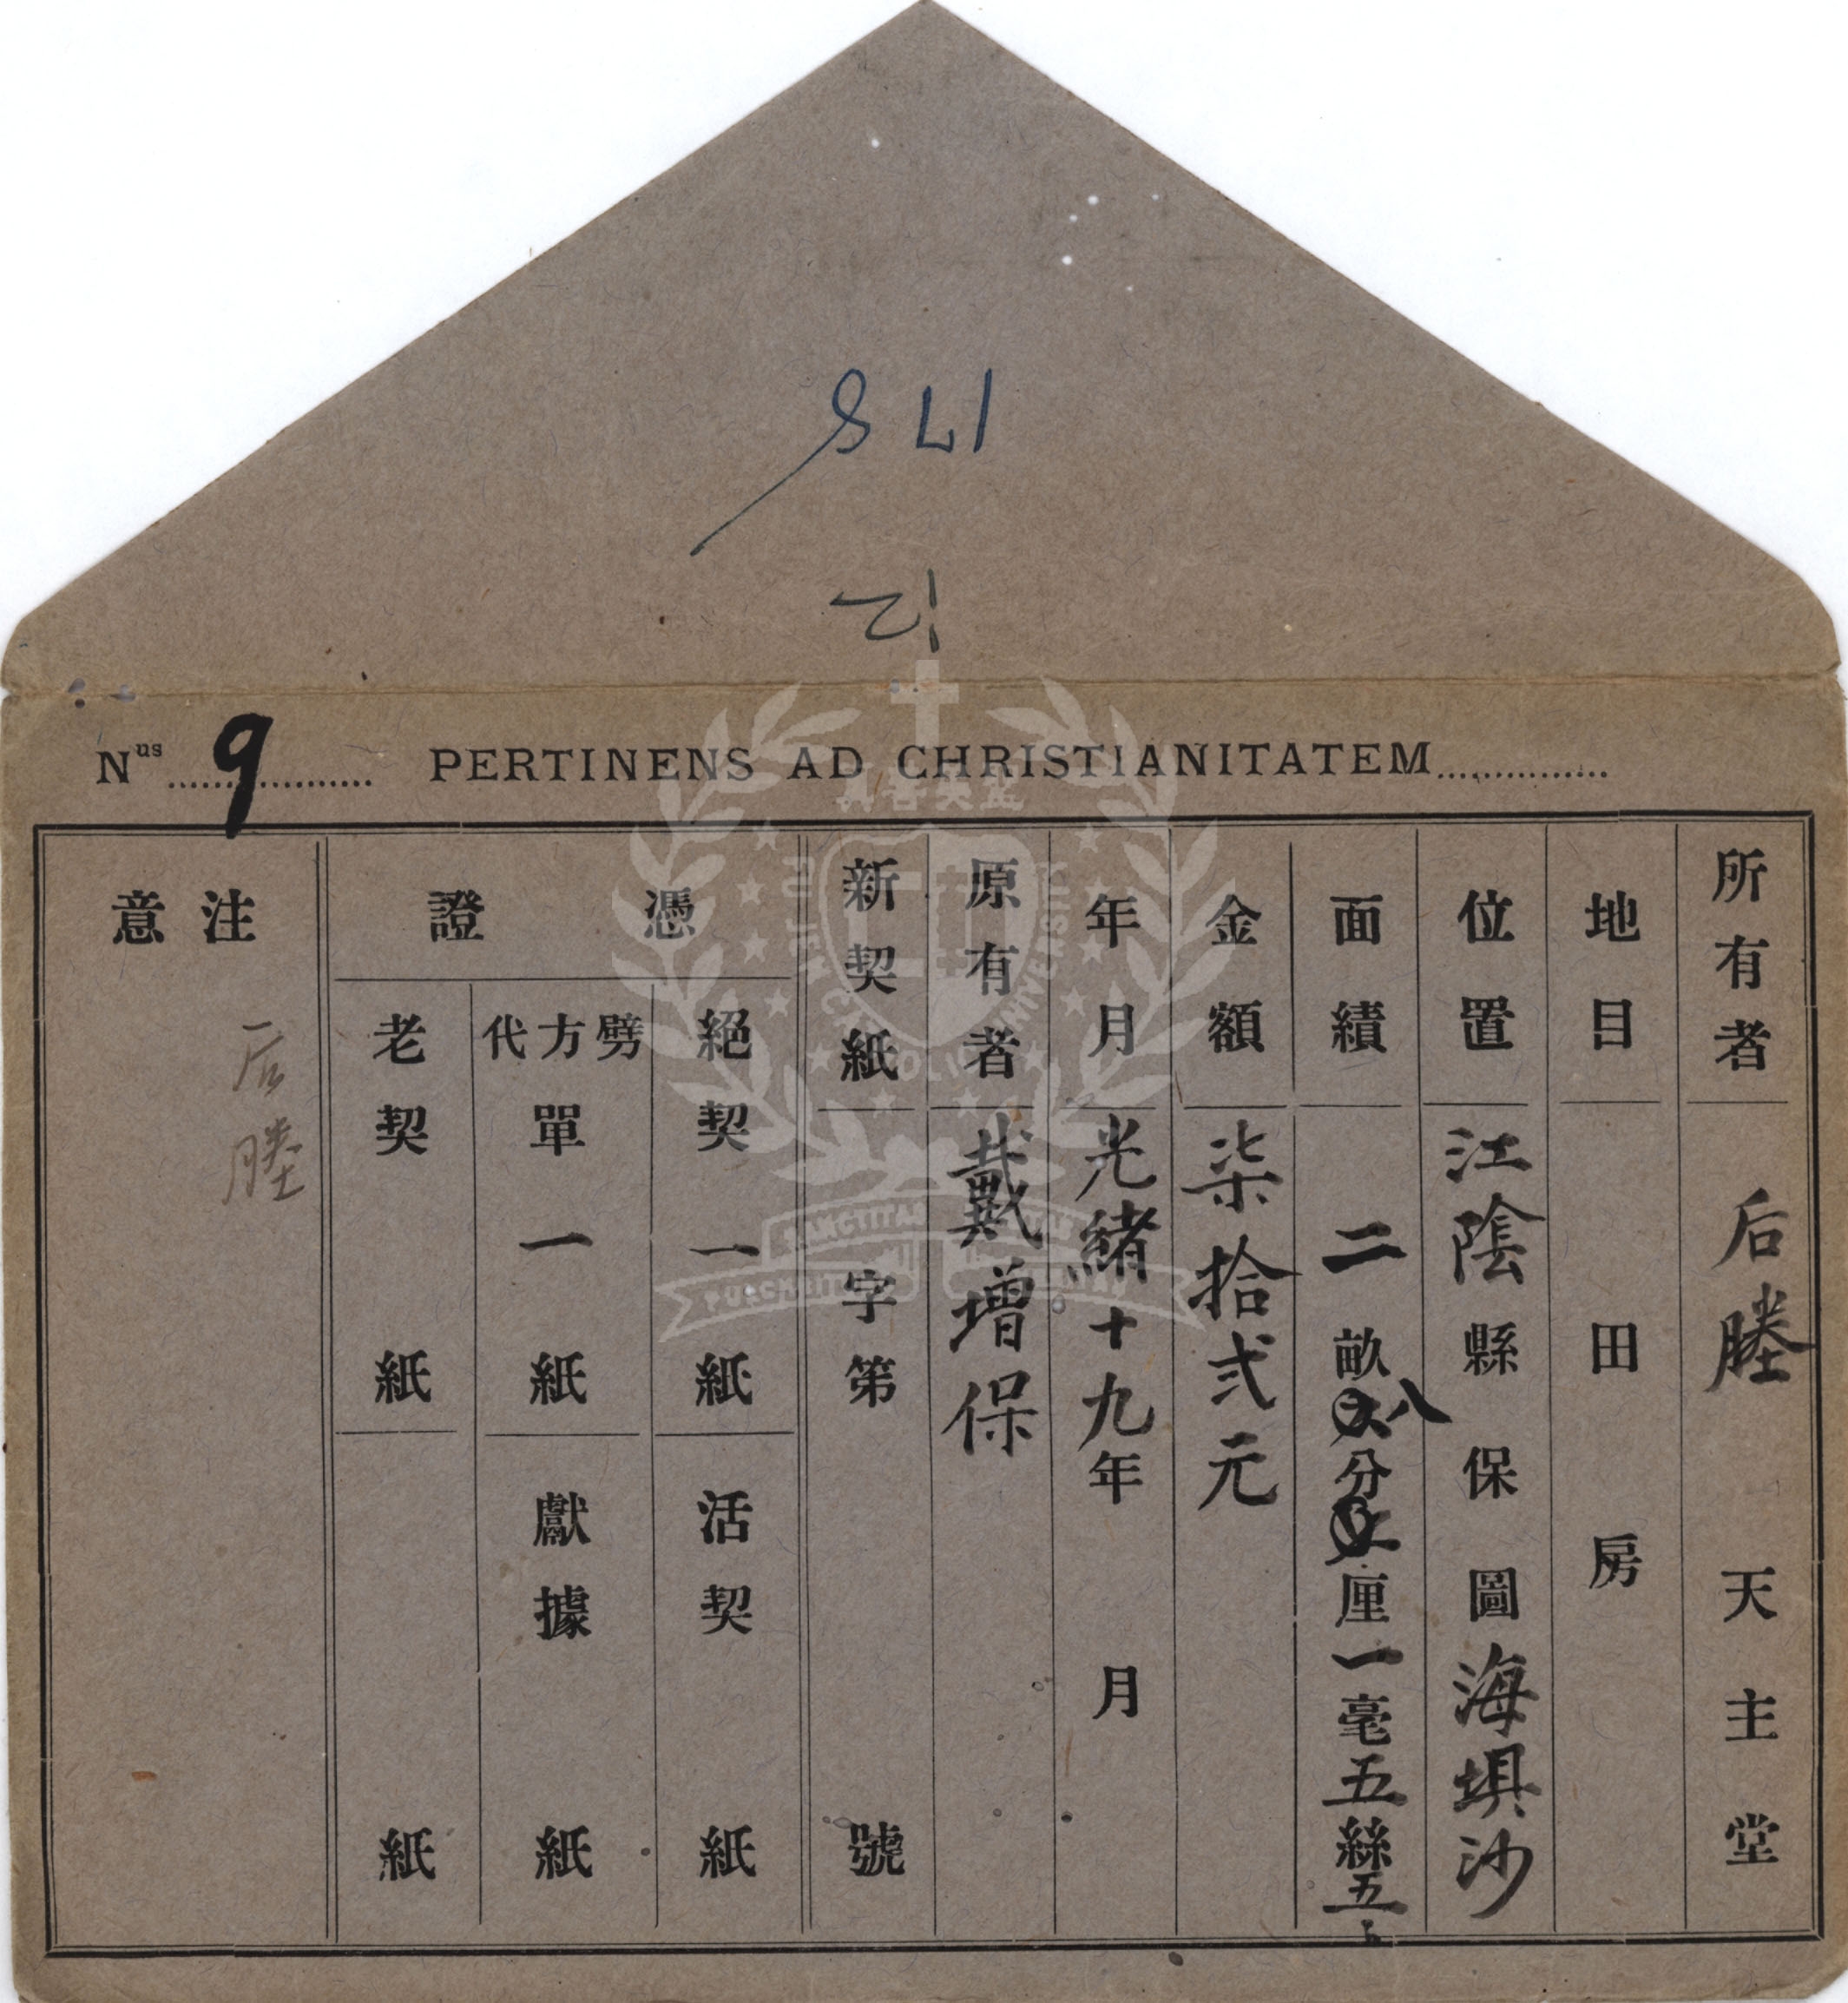 175
12
Nus 9 PERTINENS AD CHRISTIANITATEM
所有者 后塍 天主堂
地目 田 房
位置 江陰縣 保 圖 海壩沙
面績 二畝八分 厘一毫五絲五
金額 柒拾弍元
年月 光緒十九年 月
原有者 戴增保
新契紙 字第 號
憑證
絕契 一紙 活契 紙
劈方代單 一紙 獻據 紙
老契 紙 紙
注意
后塍